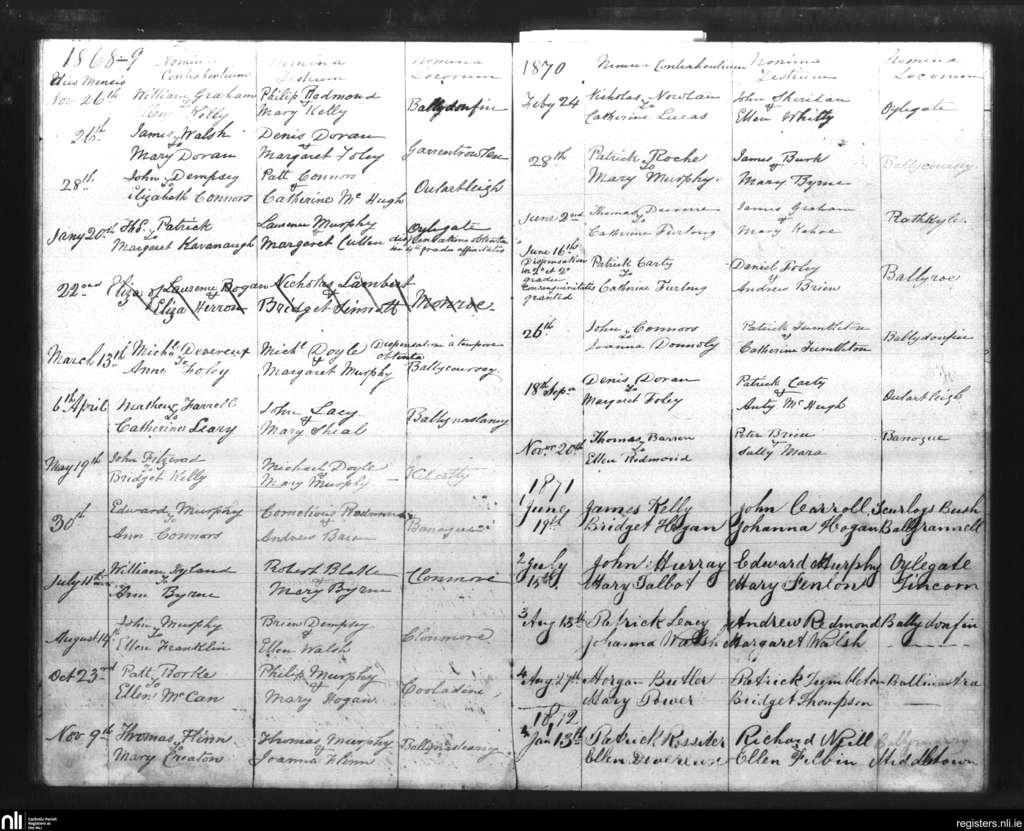 1868-9
Nomina Nomina Nomina
Dies Mensis Contrahentium Testium Locorum
Nov. 26th William Graham Philip Redmond
To & Ballydonfin
Ellen Kelly Mary Kelly
26th James Walsh Denis Doran
To &
Mary Doran Margaret Foley
28th John Dempsey Patt Connors
To & Oulartleigh
Elizabeth Connors Catherine Mc Hugh
Jany 20th Thos. Patrick Laurence Murphy Oylegate
To &
Margaret Kavanaugh Margaret Cullen
22nd Eliza of Laurence Bogan Nicholas Lambert
& & Monroe
Eliza Herron Bridget Sinnott
March 13th Michl. Devereux Michl Doyle Dispensatione a tempore
To & obtenta
Anne Foley Margaret Murphy Ballycourcy
6th April Mathew Farrell John Lacy
To & Ballynaslaney
Catherine Leary Mary Sheal
May 19th John Fitzerad Michael Doyle
To &
Bridget Kelly Mary Murphy
30th Edward Murphy Cornelious Redmond
To & Banogue
Ann Connors Andrew Bacon
July 11th William Hyland Robert Blake
To & Clonmore
Ann Byrne Mary Byrne
August 14th John Murphy Brien Dempsy
To & Clonmore
Ellen Franklin Ellen Walsh
Oct 23rd Patt Rorke Philip Murphy
To & Cooladine
Ellen McCan Mary Hogan
Nov 9th Thomas Flinn Thomas Murphy
To & Ballynaslaney
Mary Creaton Joanna Flinn
1870 Nomina Contrahentium Nomina Nomina
Testium Locorum
Feby 24 Nicholas Nowlan John Sheridan
To & Oylegate
Catherine Lucas Ellen Whitty
28th Patrick Roche James Burk
To & Ballycourcy
Mary Murphy. Mary Byrne
June 2nd Thomas James Graham
To & Rathkyle
Catherine Furlong Mary Kehoe
June 16th
Dispensation Patrick Carty Daniel Foley
in 2o et 2o To & Ballyroe
gradu Catherine Furlong Andrew Brien
consanguinitatis
granted
26th John Connors Patrick Tumbleton
To & Ballydonfin
Joanna Donnoly Catherine Tumbleton
18th Sepr. Denis Doran Patrick Carty
To & Oulartleigh
Margaret Foley Anty Mc Hugh
Novr 20th Thomas Barron Peter Brien
To & Banogue
Ellen Redmond Sally Mara
1871
June James Kelly John Carroll Scurlogs Bush
19th Bridget Hogan Johanna Hogan Ballyrannell
2 July John Murray Edward Murphy Oylegate
15th. Mary Talbot Mary Fenlon Tincorn
3 Aug 13th Patrick Leacy Andrew Redmond Ballydonfin
Johanna Walsh Margaret Walsh
4 Aug 27th Morgan Butler Patrick Tumbleton Ballinastra
Mary Power Bridget Thompson
1872
1 Jan 13th Patrick Rossiter Richard Neill
Ellen Devereux Ellen Filbin Middletown
nli Catholic Parish Registers at the NLI
registers.nli.ie